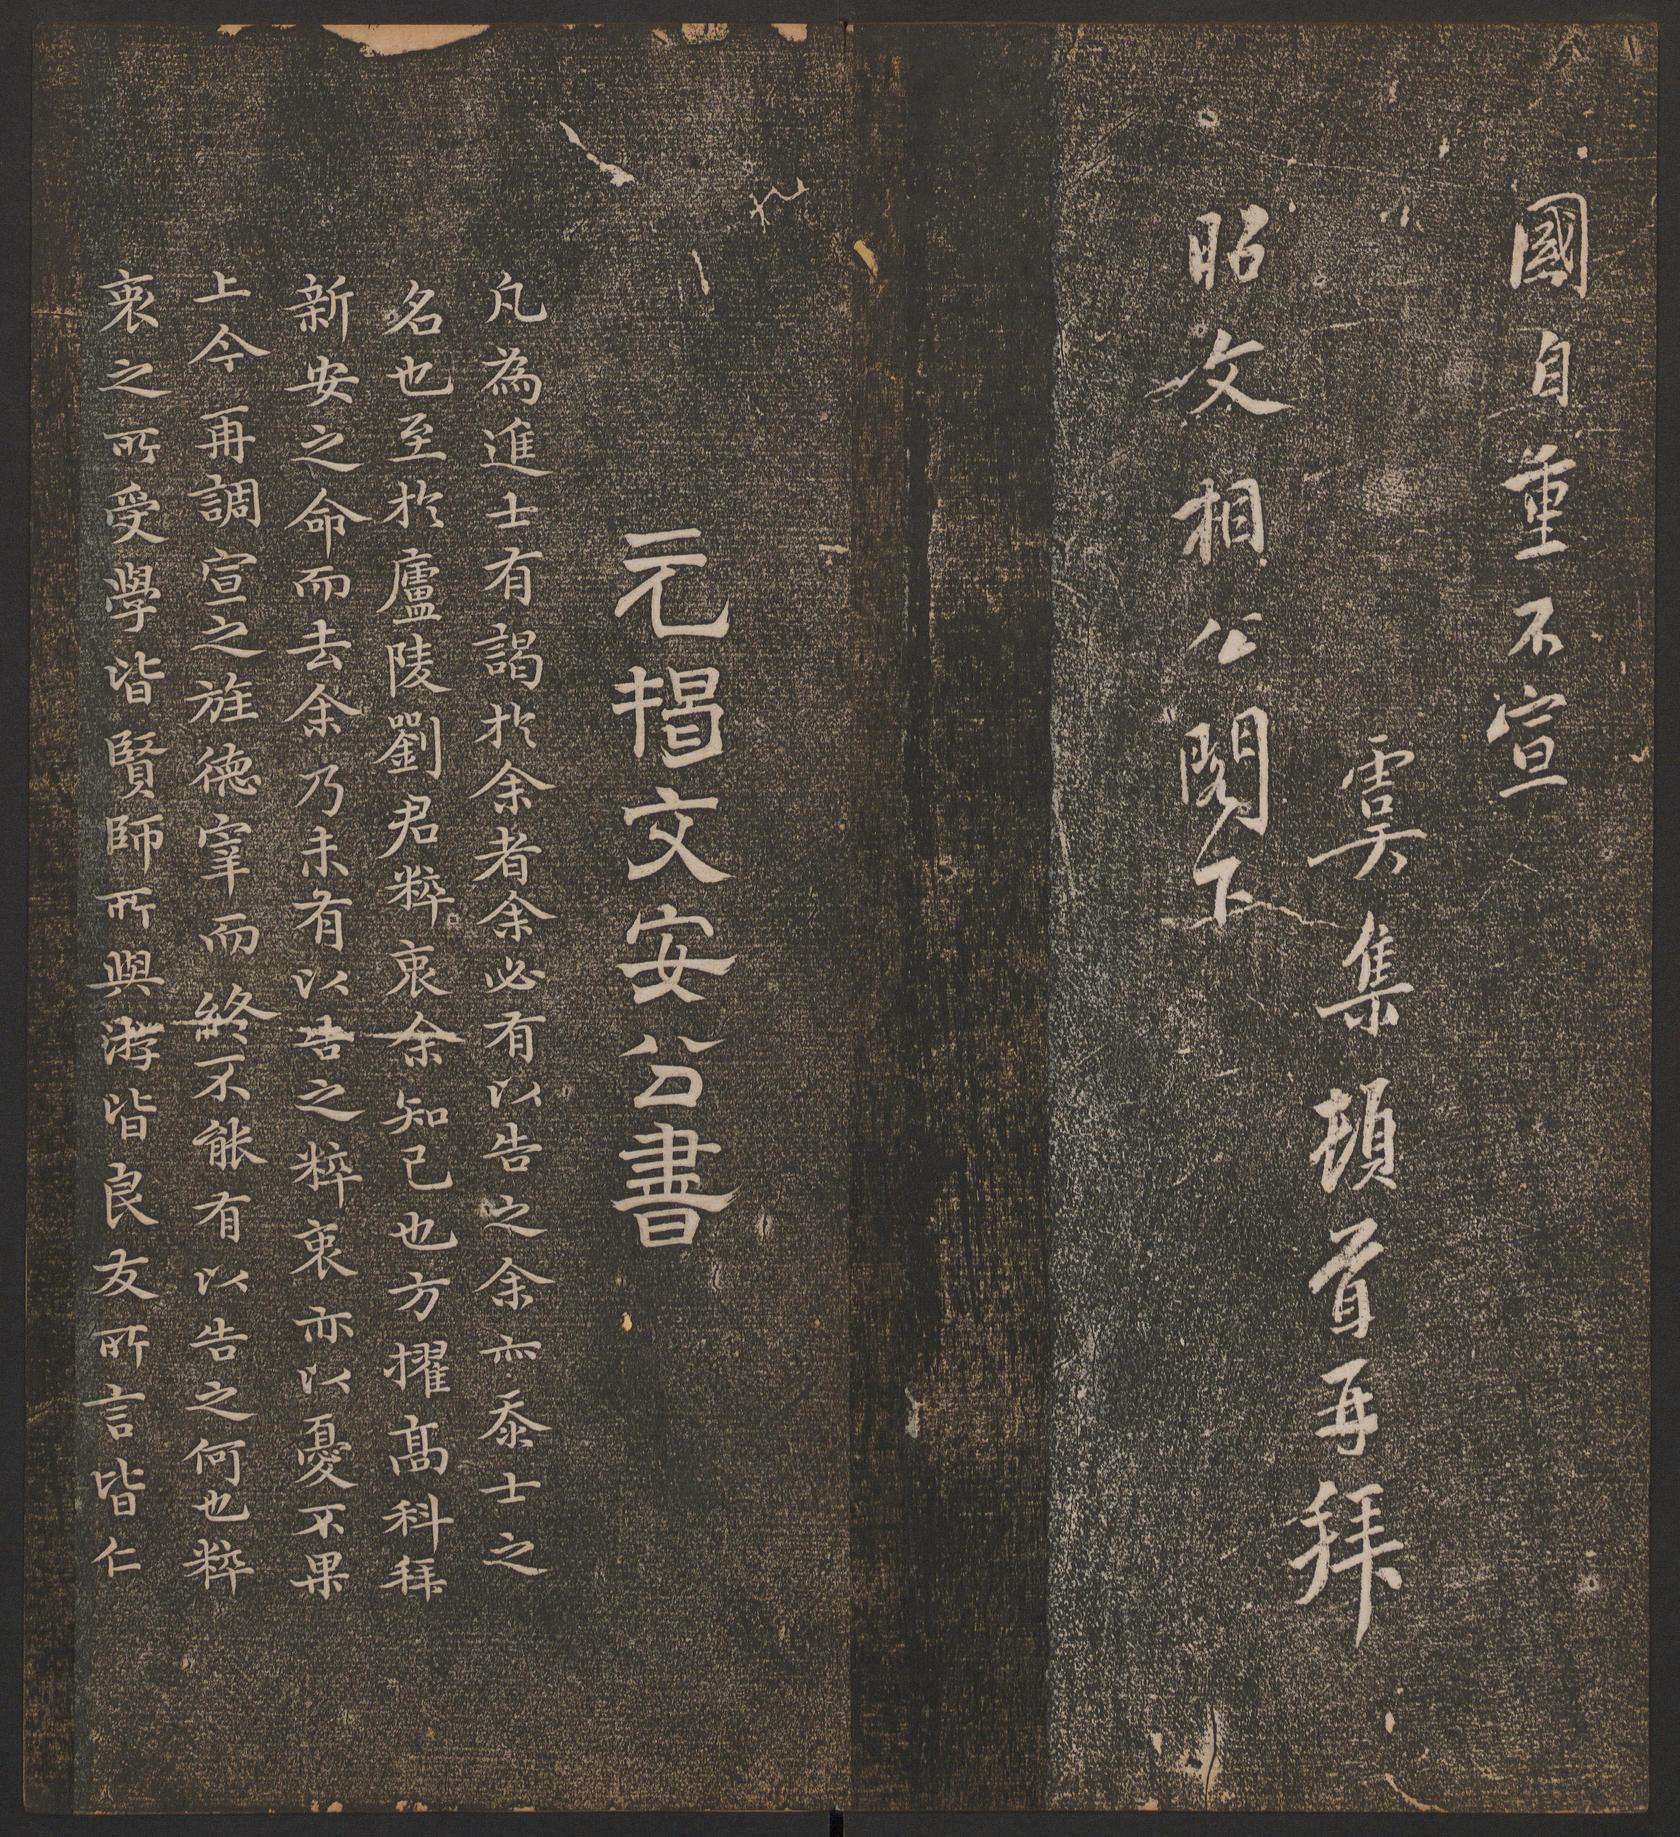 國自重不宣
虞集頓首再拜
昭文相公閣下
元揭文安公書
凡為進士有謁於余者余必有以告之余亦忝士之
名也至於廬陵劉君粹衷余知己也方擢髙科拜
新安之命而去余乃未有以告之粹衷亦以憂不果
上今再調宣之旌德宰而終不能有以告之何也粹
衷之所受學皆賢師所與游皆良友所言皆仁